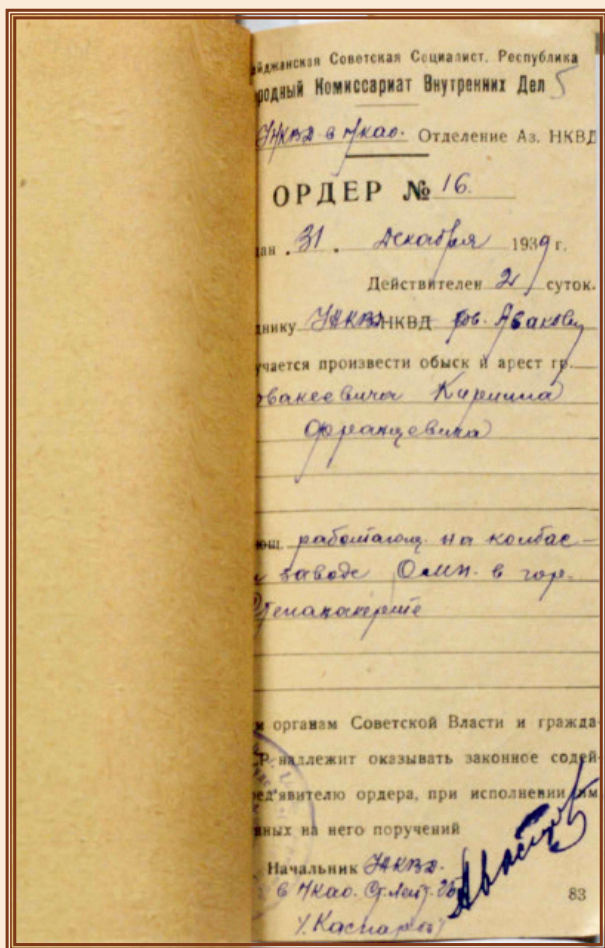 йджанская Советская Социалист. Республика
родный Комиссариат Внутренних Дел 5
УНКВД в НКАО. Отделение Аз. НКВД
ОРДЕР № 16.
дан . 31 . Декабря 1939 г.
Действителен 2 суток.
днику УНКВД НКВД тов. Авакову
учается произвести обыск и арест гр.
Кирилла
Францевича
работающ. на колбас-
заводе в гор.
Степанакерте
м органам Советской Власти и гражда-
Р надлежит оказывать законное содей-
ед'явителю ордера, при исполнении им
нных на него поручений
Начальник УНКВД.
в НКАО. Ст. Лейт. ГБ
83